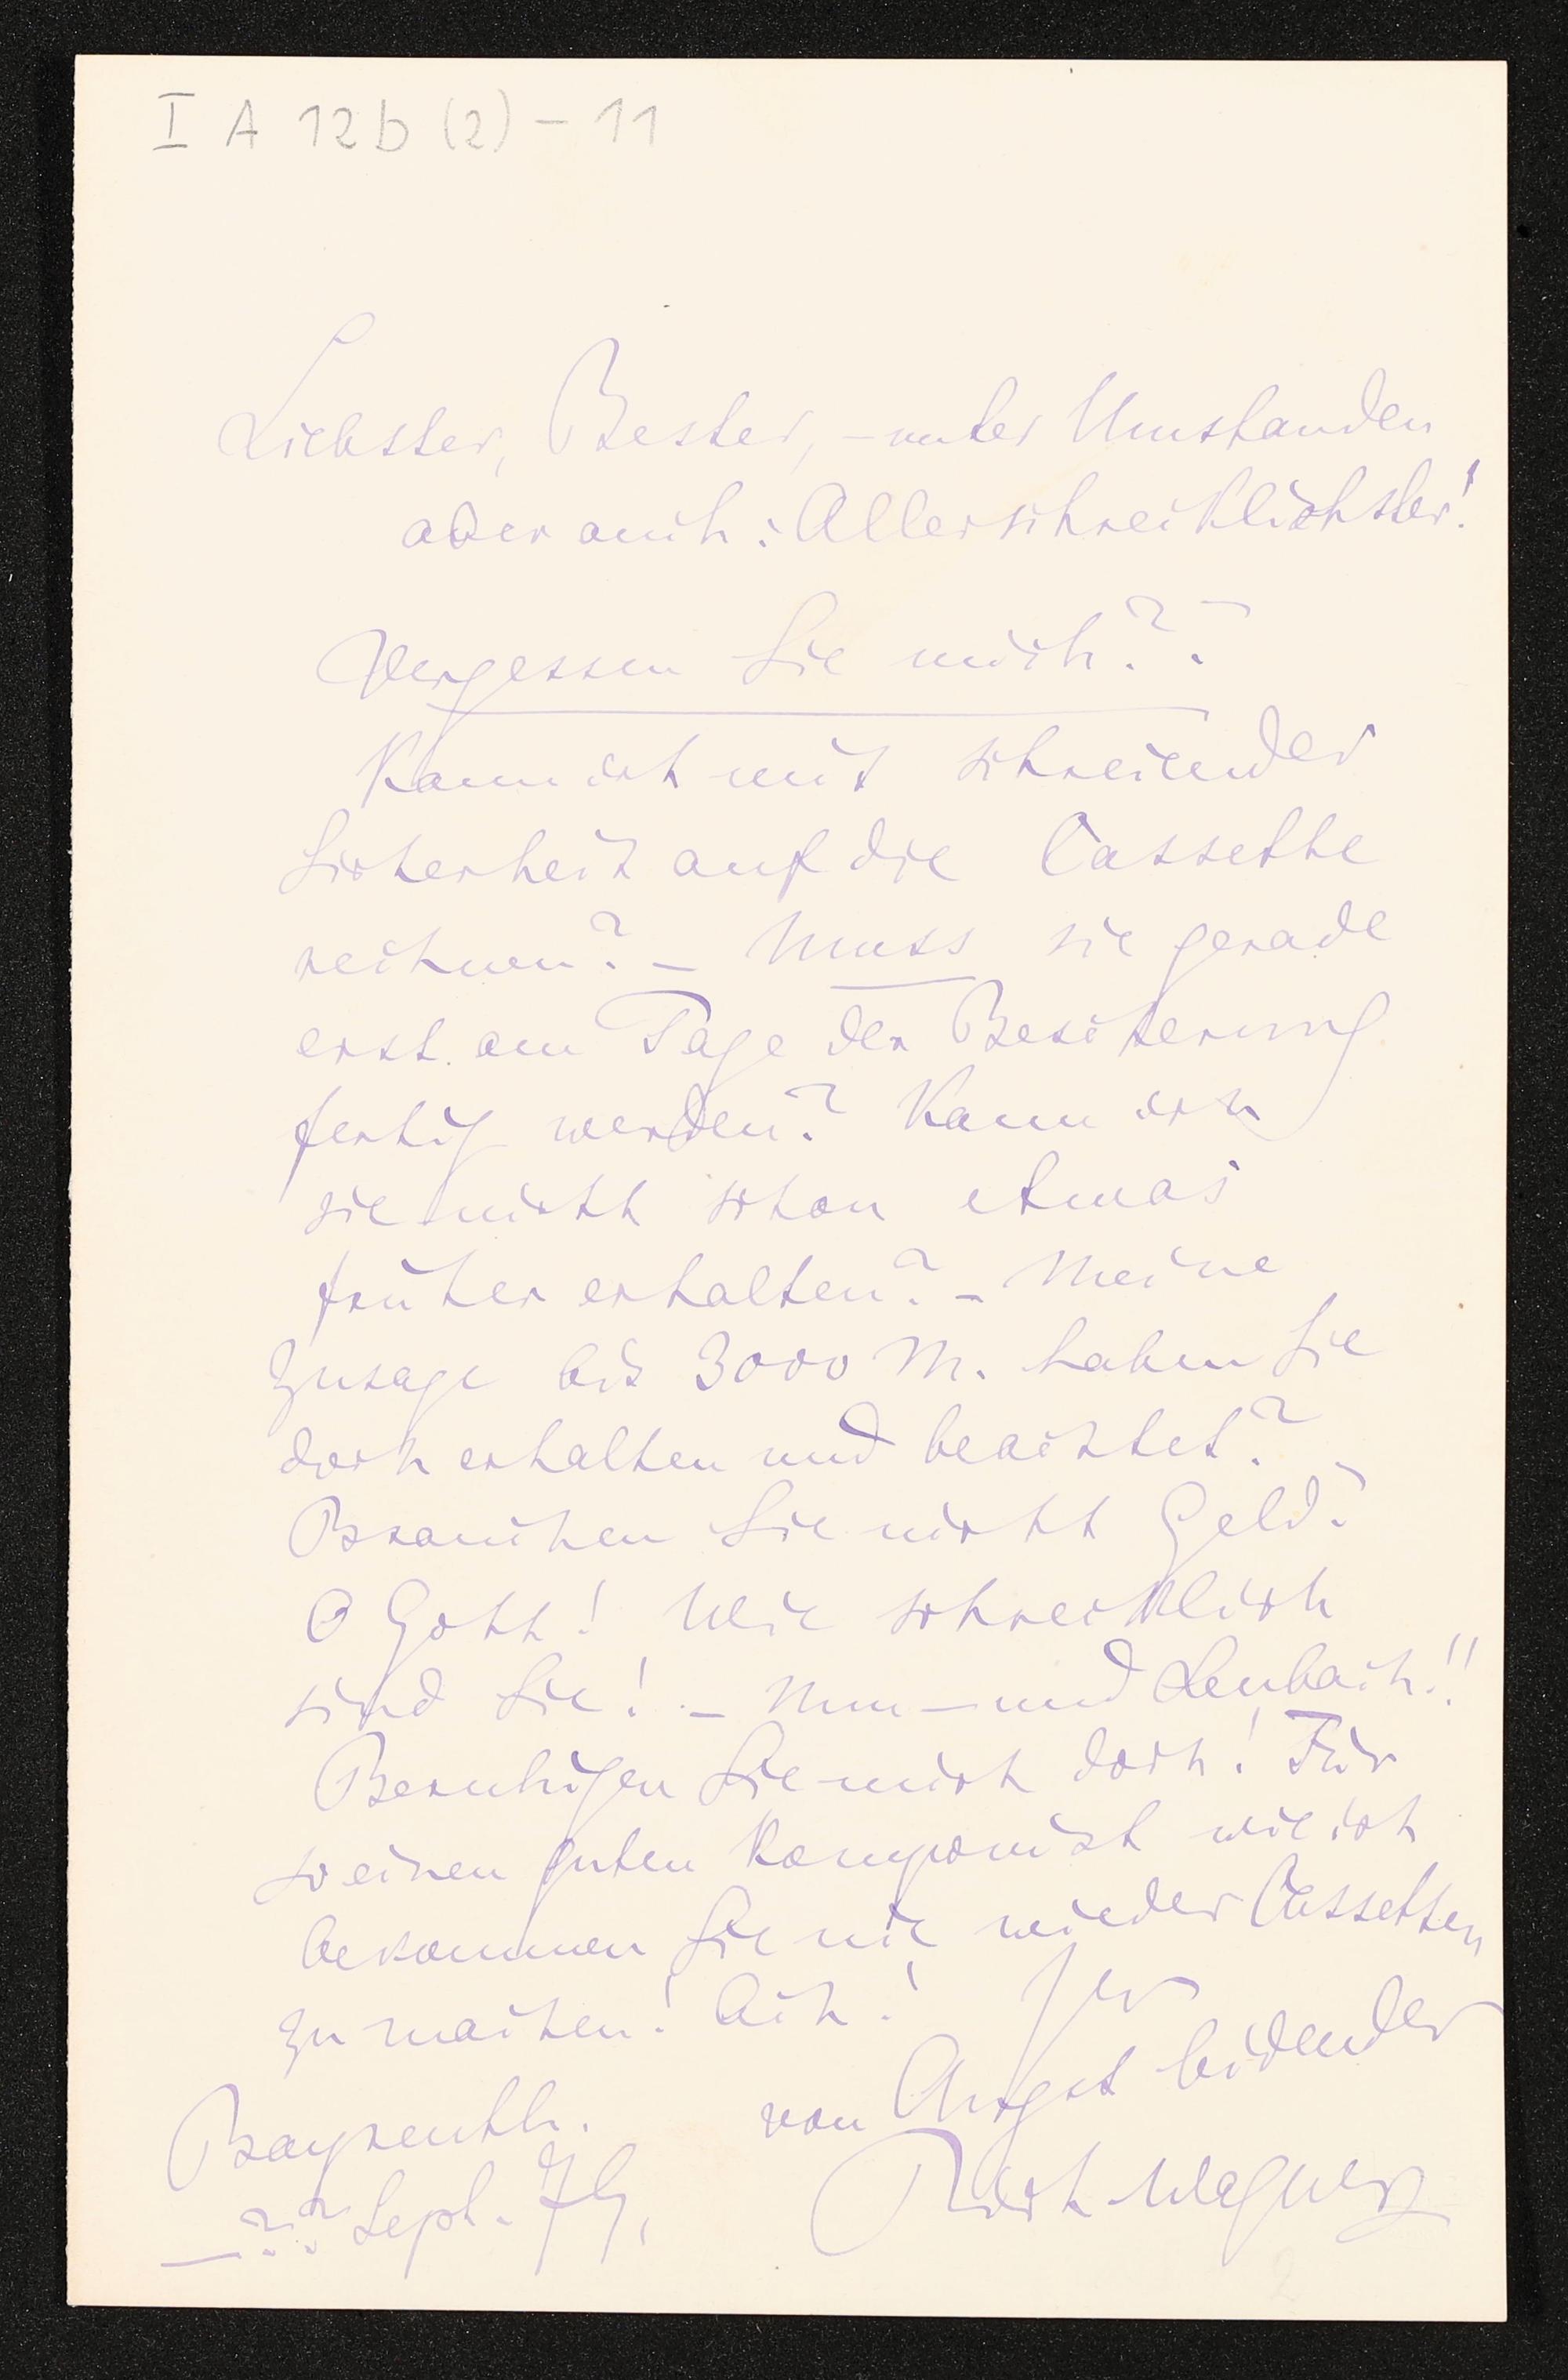 I A 12b (2) - 11
Liebster, Bester, - unter Umstanden
oder auch: Allerschrecklichster!
Vergessen Sie mich??
Kann ich mit schreiender
Sicherheit auf die Cassette
rechnen? - Muss sie gerade
erst am Tage der Bescherung
fertig werden? Kann ich
sie nicht schon etwas
früher erhalten? - Meine
Zusage bis 3000 M. haben Sie
doch erhalten und beachtet?
Brauchen Sie nicht Geld?
O Gott! Wie schrecklich
sind Sie! - Nun - und Lenbach!!
Beruhigen Sie mich doch! Für
so einen guten Komponist wie ich
bekommen Sie nie wieder Cassetten
zu machen! Ach! Ihr
von Angst leidender
Bayreuth.
?? Sept. 79.
Rich Wagner